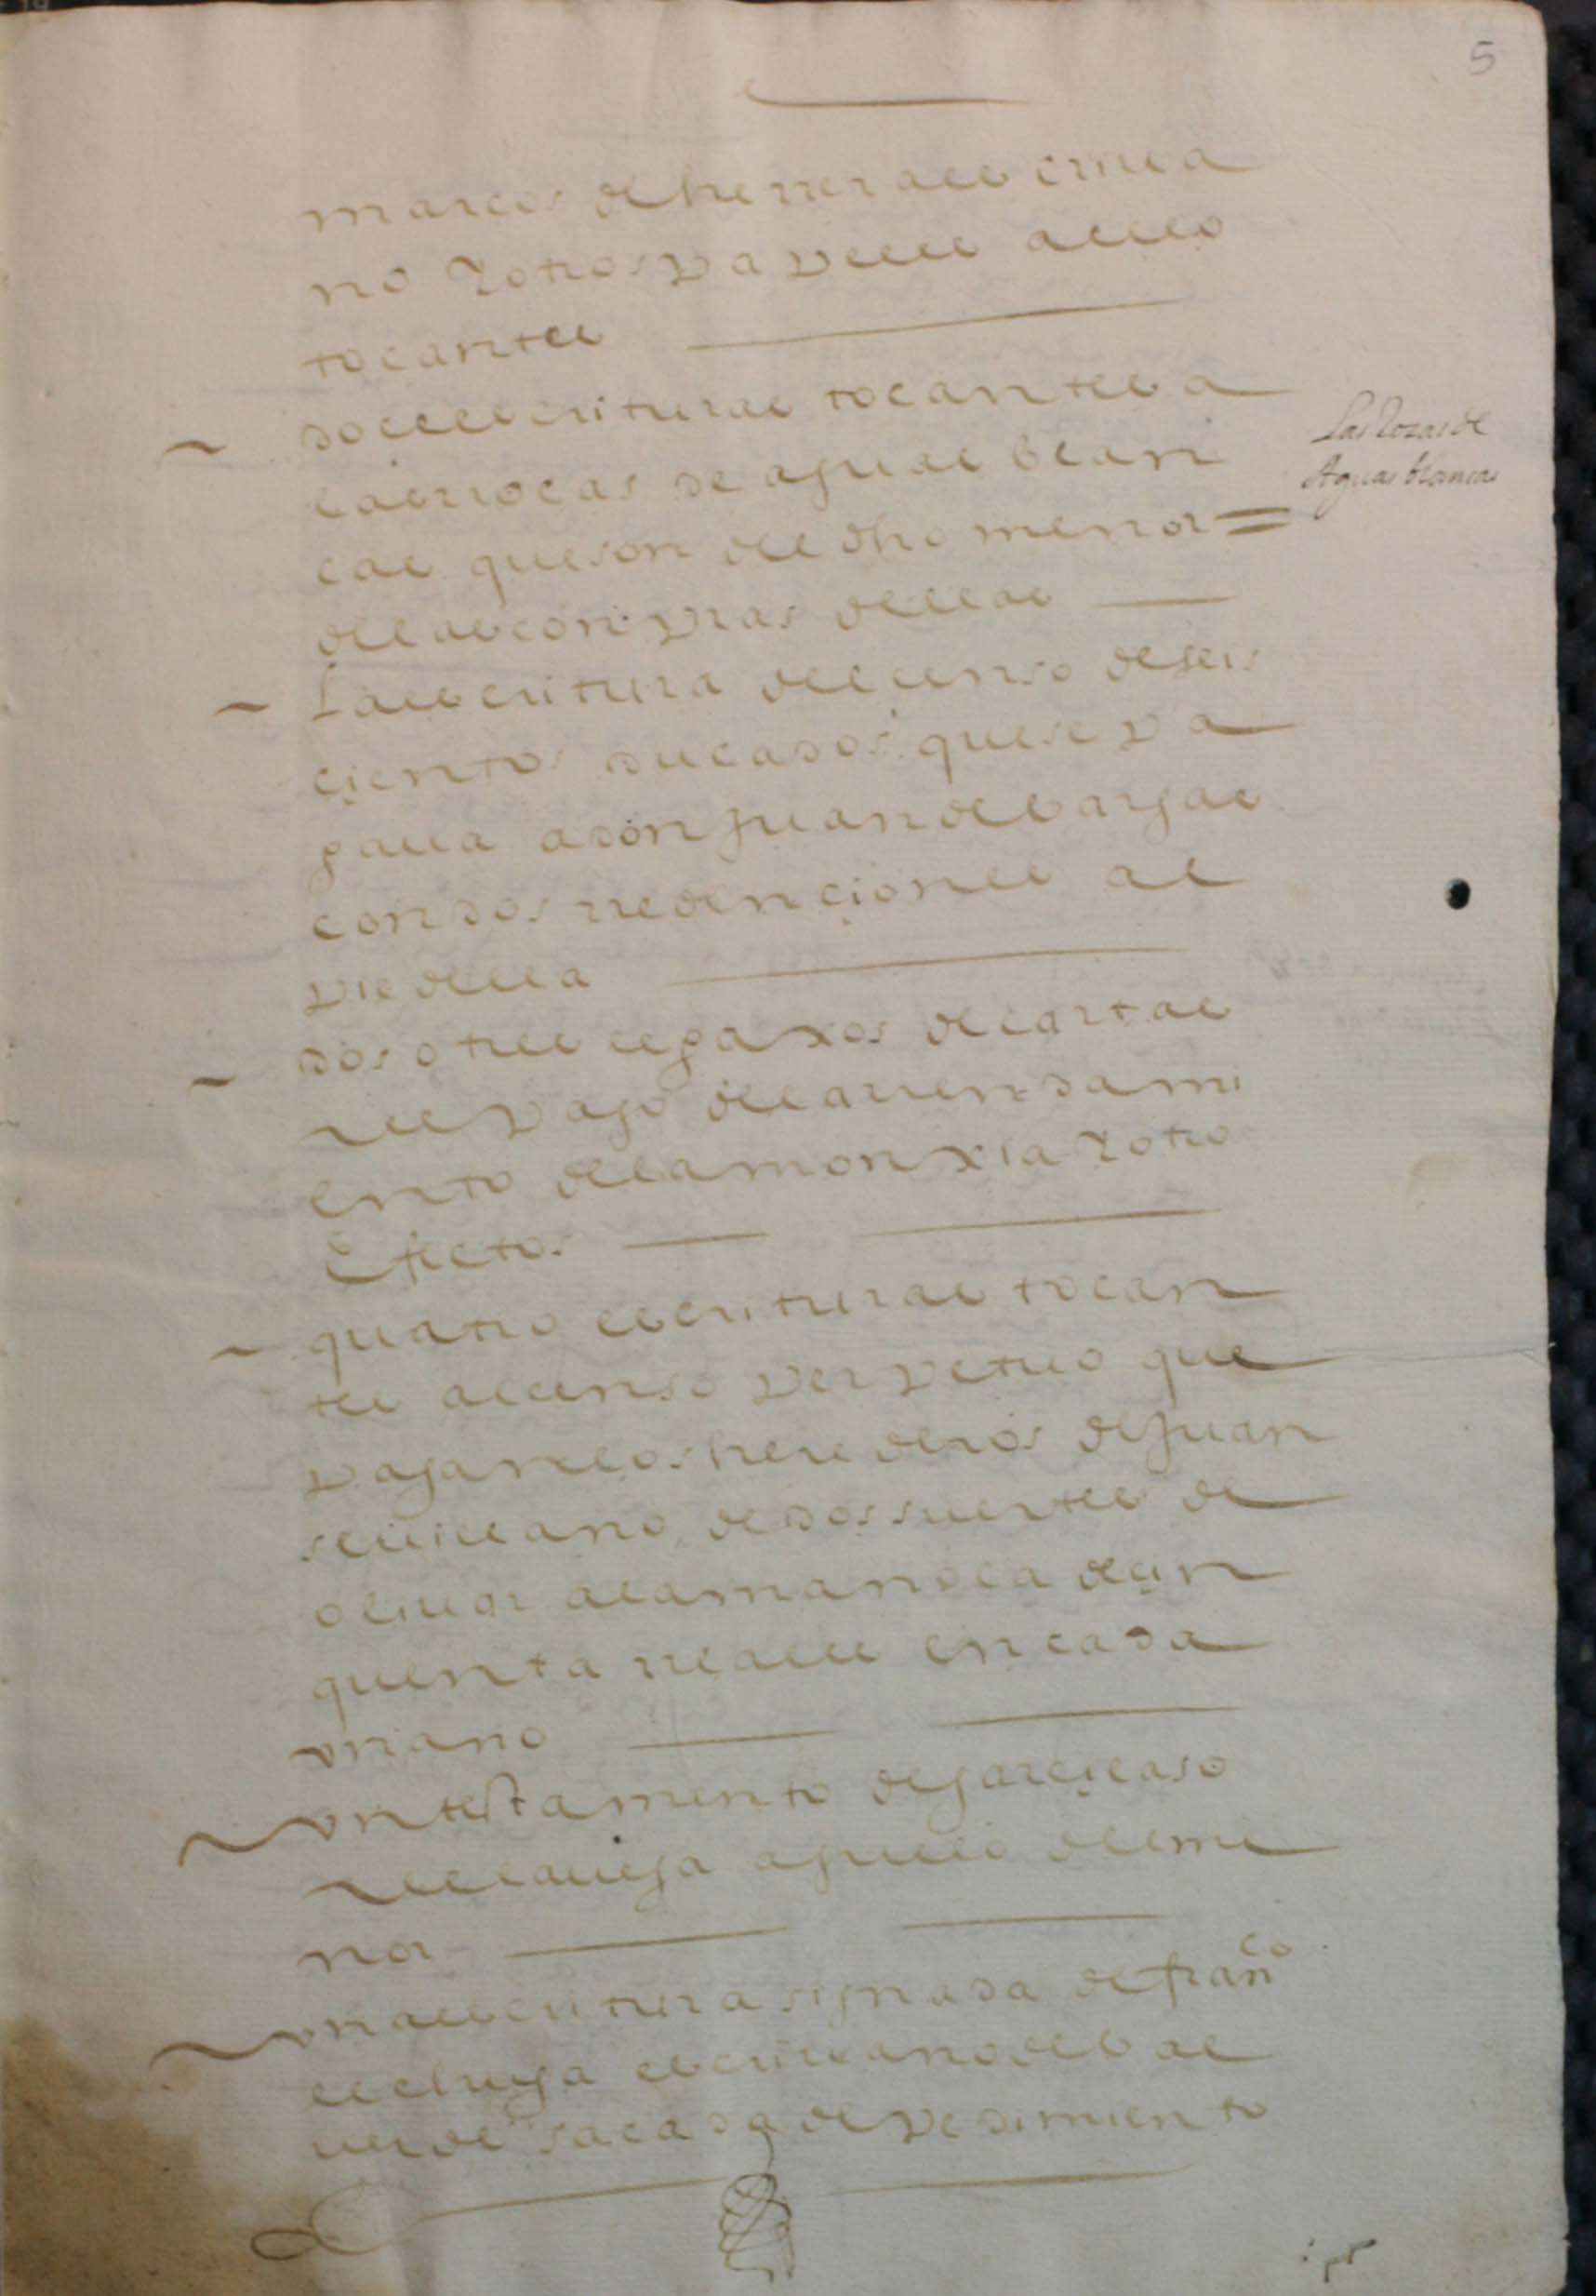 5
marcos de herrera escriua
no y otros papeles a ello
tocantes
doce escrituras tocantes a
las rrocas de aguas blan
cas que son del dho menor =
de las conpras dellas
Las Rozas de
Aguas blancas
La escritura del censo de seis
cientos ducados que se pa
gaua a don Juan de bargas
con dos rredenciones al
pie della
dos o tres legaxos de cartas
de pago del arrendami
ento de la monxia y otro
Efectos
quatro escrituras tocan
tes al censo perpetuo que
pagan los herederos de Juan
seuillano de dos suertes de
oliuar a la mano la de cin
quenta rreales en cada
vn año
vn testamento de garcilaso
de la uega aguelo del me
nor
vna escritura signada de franco
escriuano de bal
uerde sacada de pedimiento